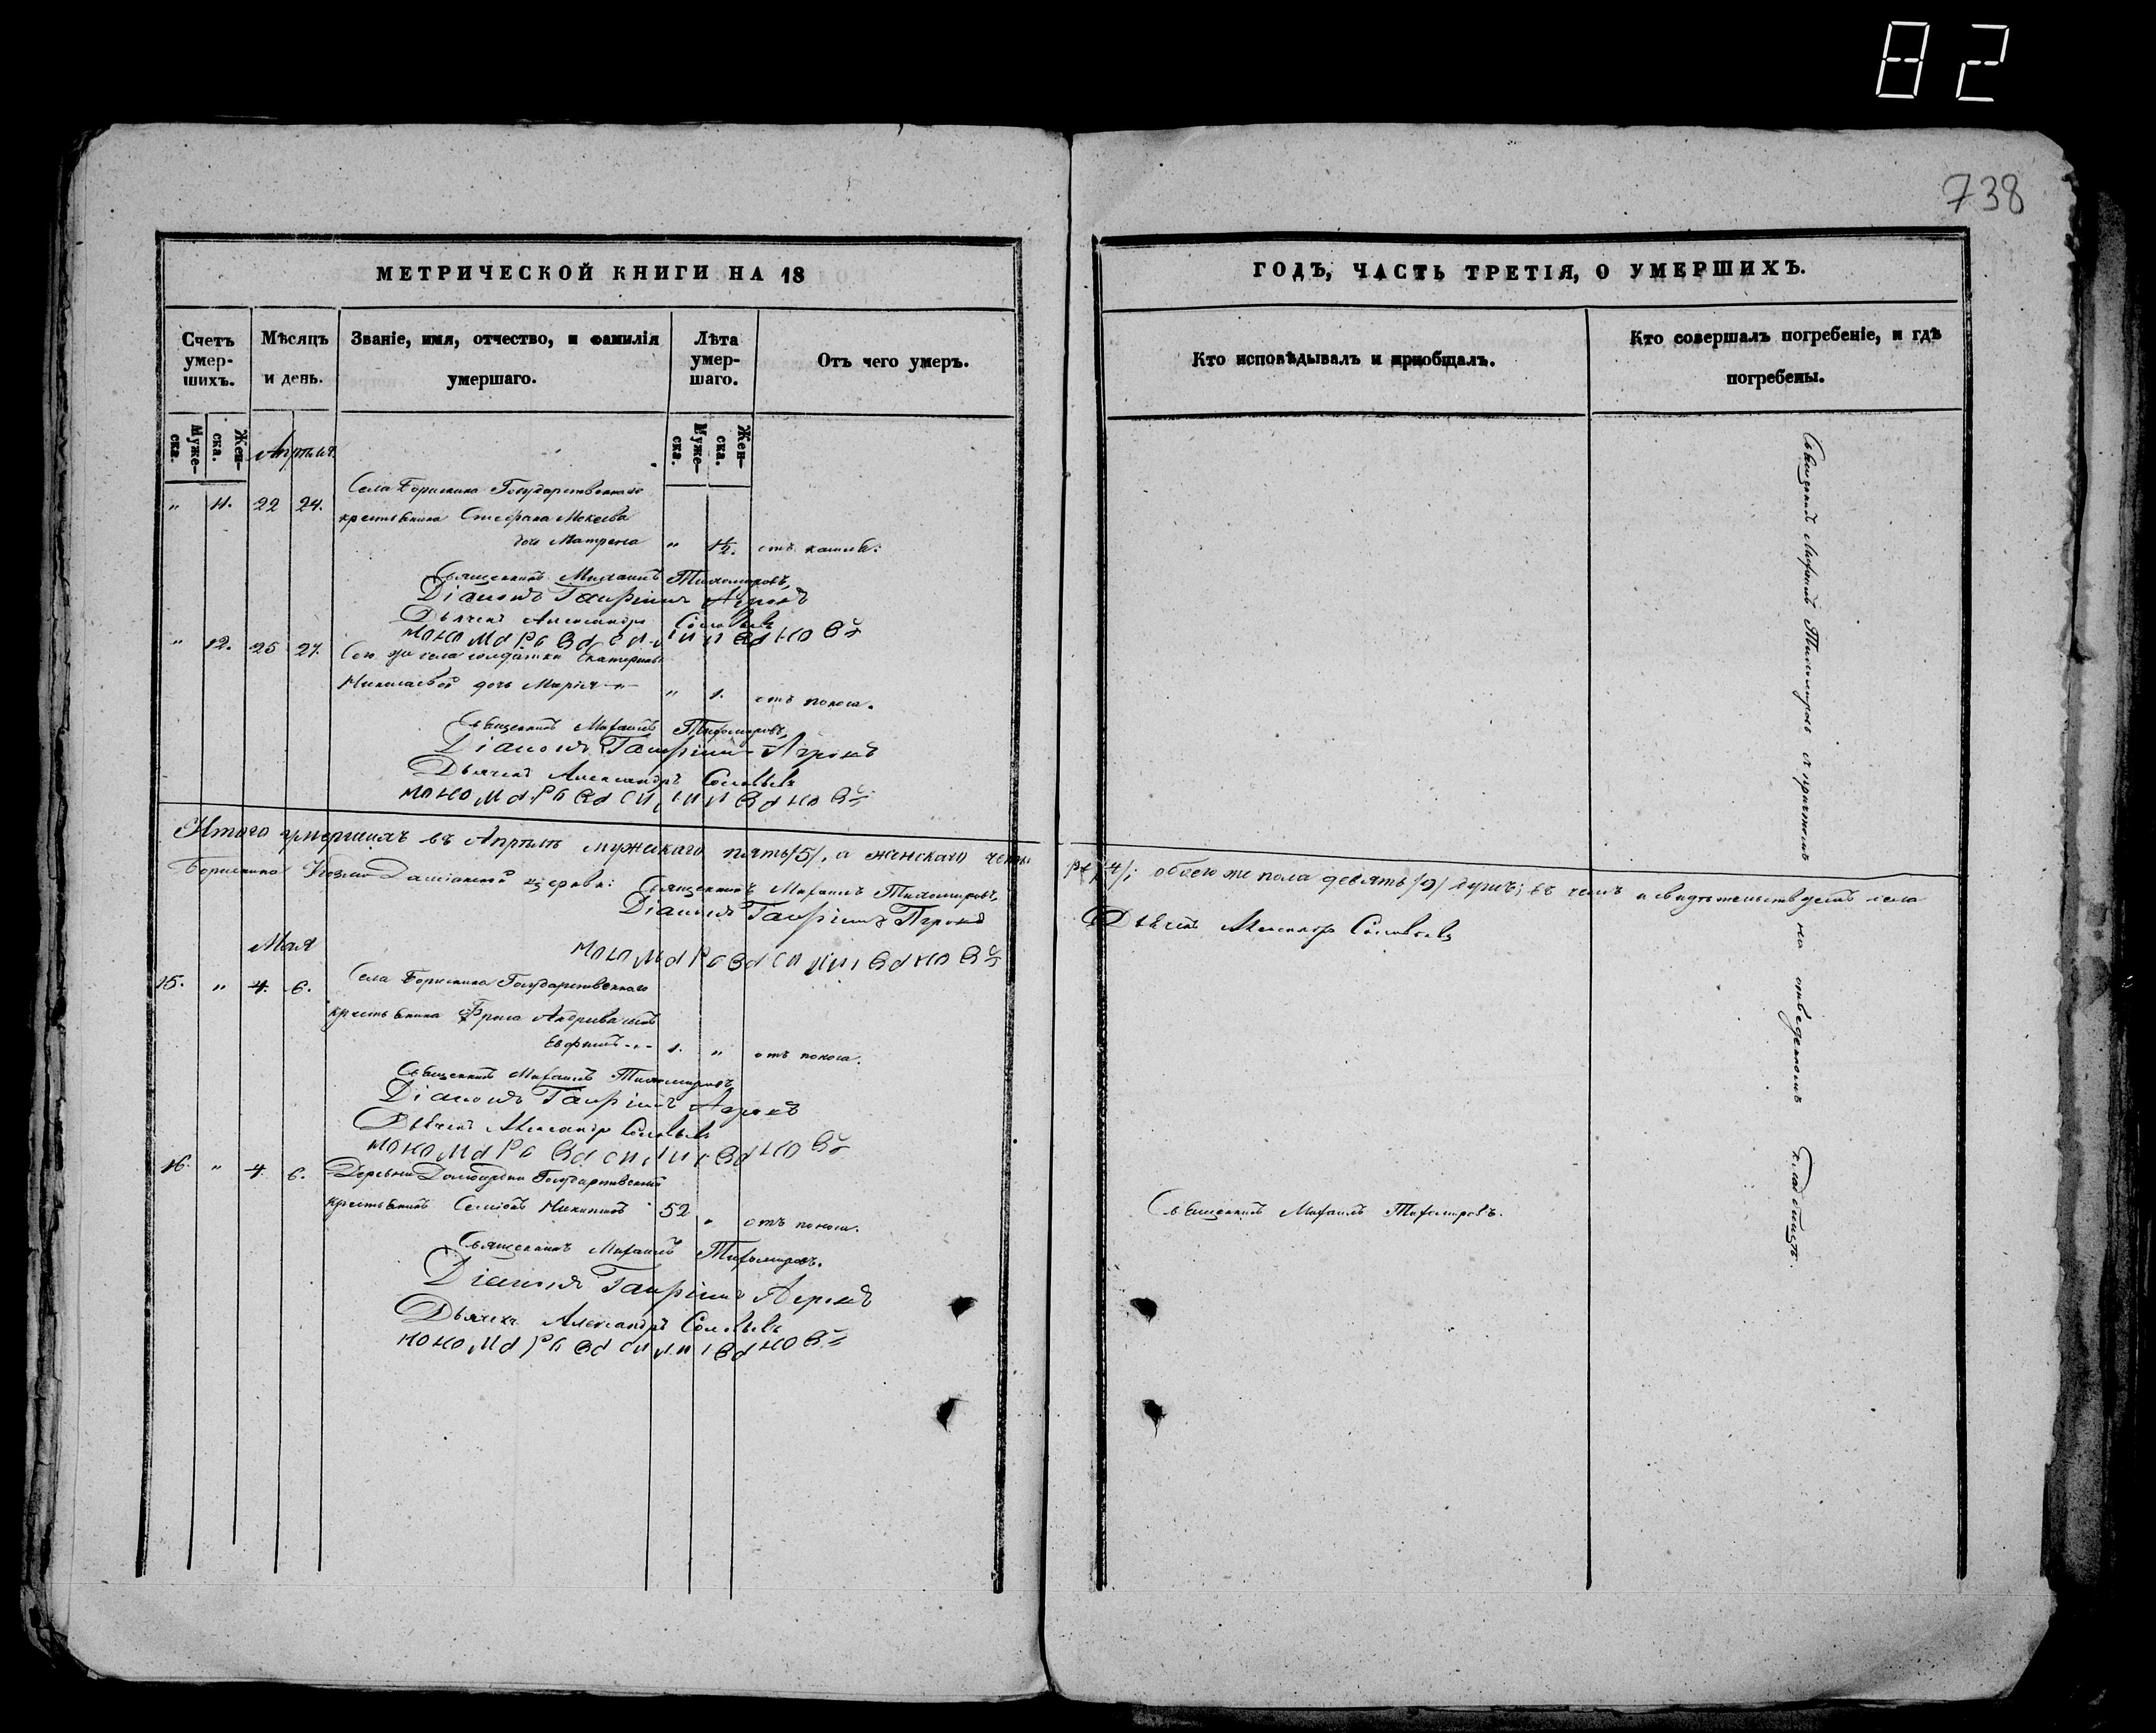 82
738
МЕТРИЧЕСКОЙ КНИГИ НА 18
Счетъ умер-шихъ.
Мѣсяцъ и день.
Званіе, имя, отчество, и фамилія умершаго.
Лѣта умер-шаго.
Отъ чего умеръ.
Муже-ска.
Жен-ска.
Муже-ска.
Жен-ска.
Апрѣля.
Села Борискина Государственнаго
" 11. 22 24. крестьянина Стефана Мокеева
дочь Матрена " 1½. отъ кашля.
Священникъ Михаилъ Тихомировъ,
Діаконъ Гавріилъ
Дьячекъ Александръ Соловьевъ
" 12. 25 27. Того же села солдатки Екатерины
Николаевой дочь Марія " 1. отъ поноса.
Священникъ Михаилъ Тихомировъ,
Діаконъ Гавріилъ
Дьячекъ Александръ Соловьевъ
Итого умершихъ въ Апрѣлѣ мужескаго пять /5/, а женскаго четы-
Борискина Козмо Даміанской церкви: Священникъ Михаилъ Тихомировъ,
Діаконъ Гавріилъ
Мая
Села Борискина Государственнаго
15. " 4. 6. крестьянина Андреева сынъ
1. " отъ поноса.
Священникъ Михаилъ Тихомировъ,
Діаконъ Гавріилъ
Дьячекъ Александръ Соловьевъ
16. " 4. 6. Деревни Государственный
крестьянинъ Никитинъ 52 " отъ поноса.
Священникъ Михаилъ Тихомировъ.
Діаконъ Гавріилъ
Дьячекъ Александръ Соловьевъ
ГОДЪ, ЧАСТЬ ТРЕТІЯ, О УМЕРШИХЪ.
Кто исповѣдывалъ и приобщалъ.
Кто совершалъ погребеніе, и гдѣ погребены.
ре /4/; обоего же пола девять /9/ душъ; въ чемъ и свидѣтельствуетъ села
Дьячекъ Александръ Соловьевъ
Священникъ Михаилъ Тихомировъ.
Священникъ Михаилъ Тихомировъ съ причтомъ на отведенномъ кладбищѣ.